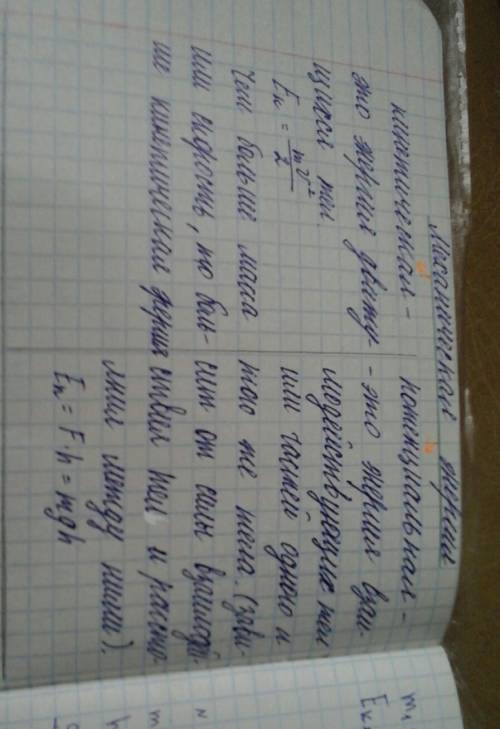 Механическая энергия
кинетическая -
это энергия движу-
щихся тел.
Eк = mv²/2
Чем больше масса
или скорость, то боль-
ше кинетическая энергия
потенциальная -
- это энергия взаи-
модействующих тел
или частей одного и
того же тела. (зави-
сит от силы взаимодей-
ствия тел и расстоя-
ния между ними).
Eп = F·h = mgh
m₁
Eк
N
m
h